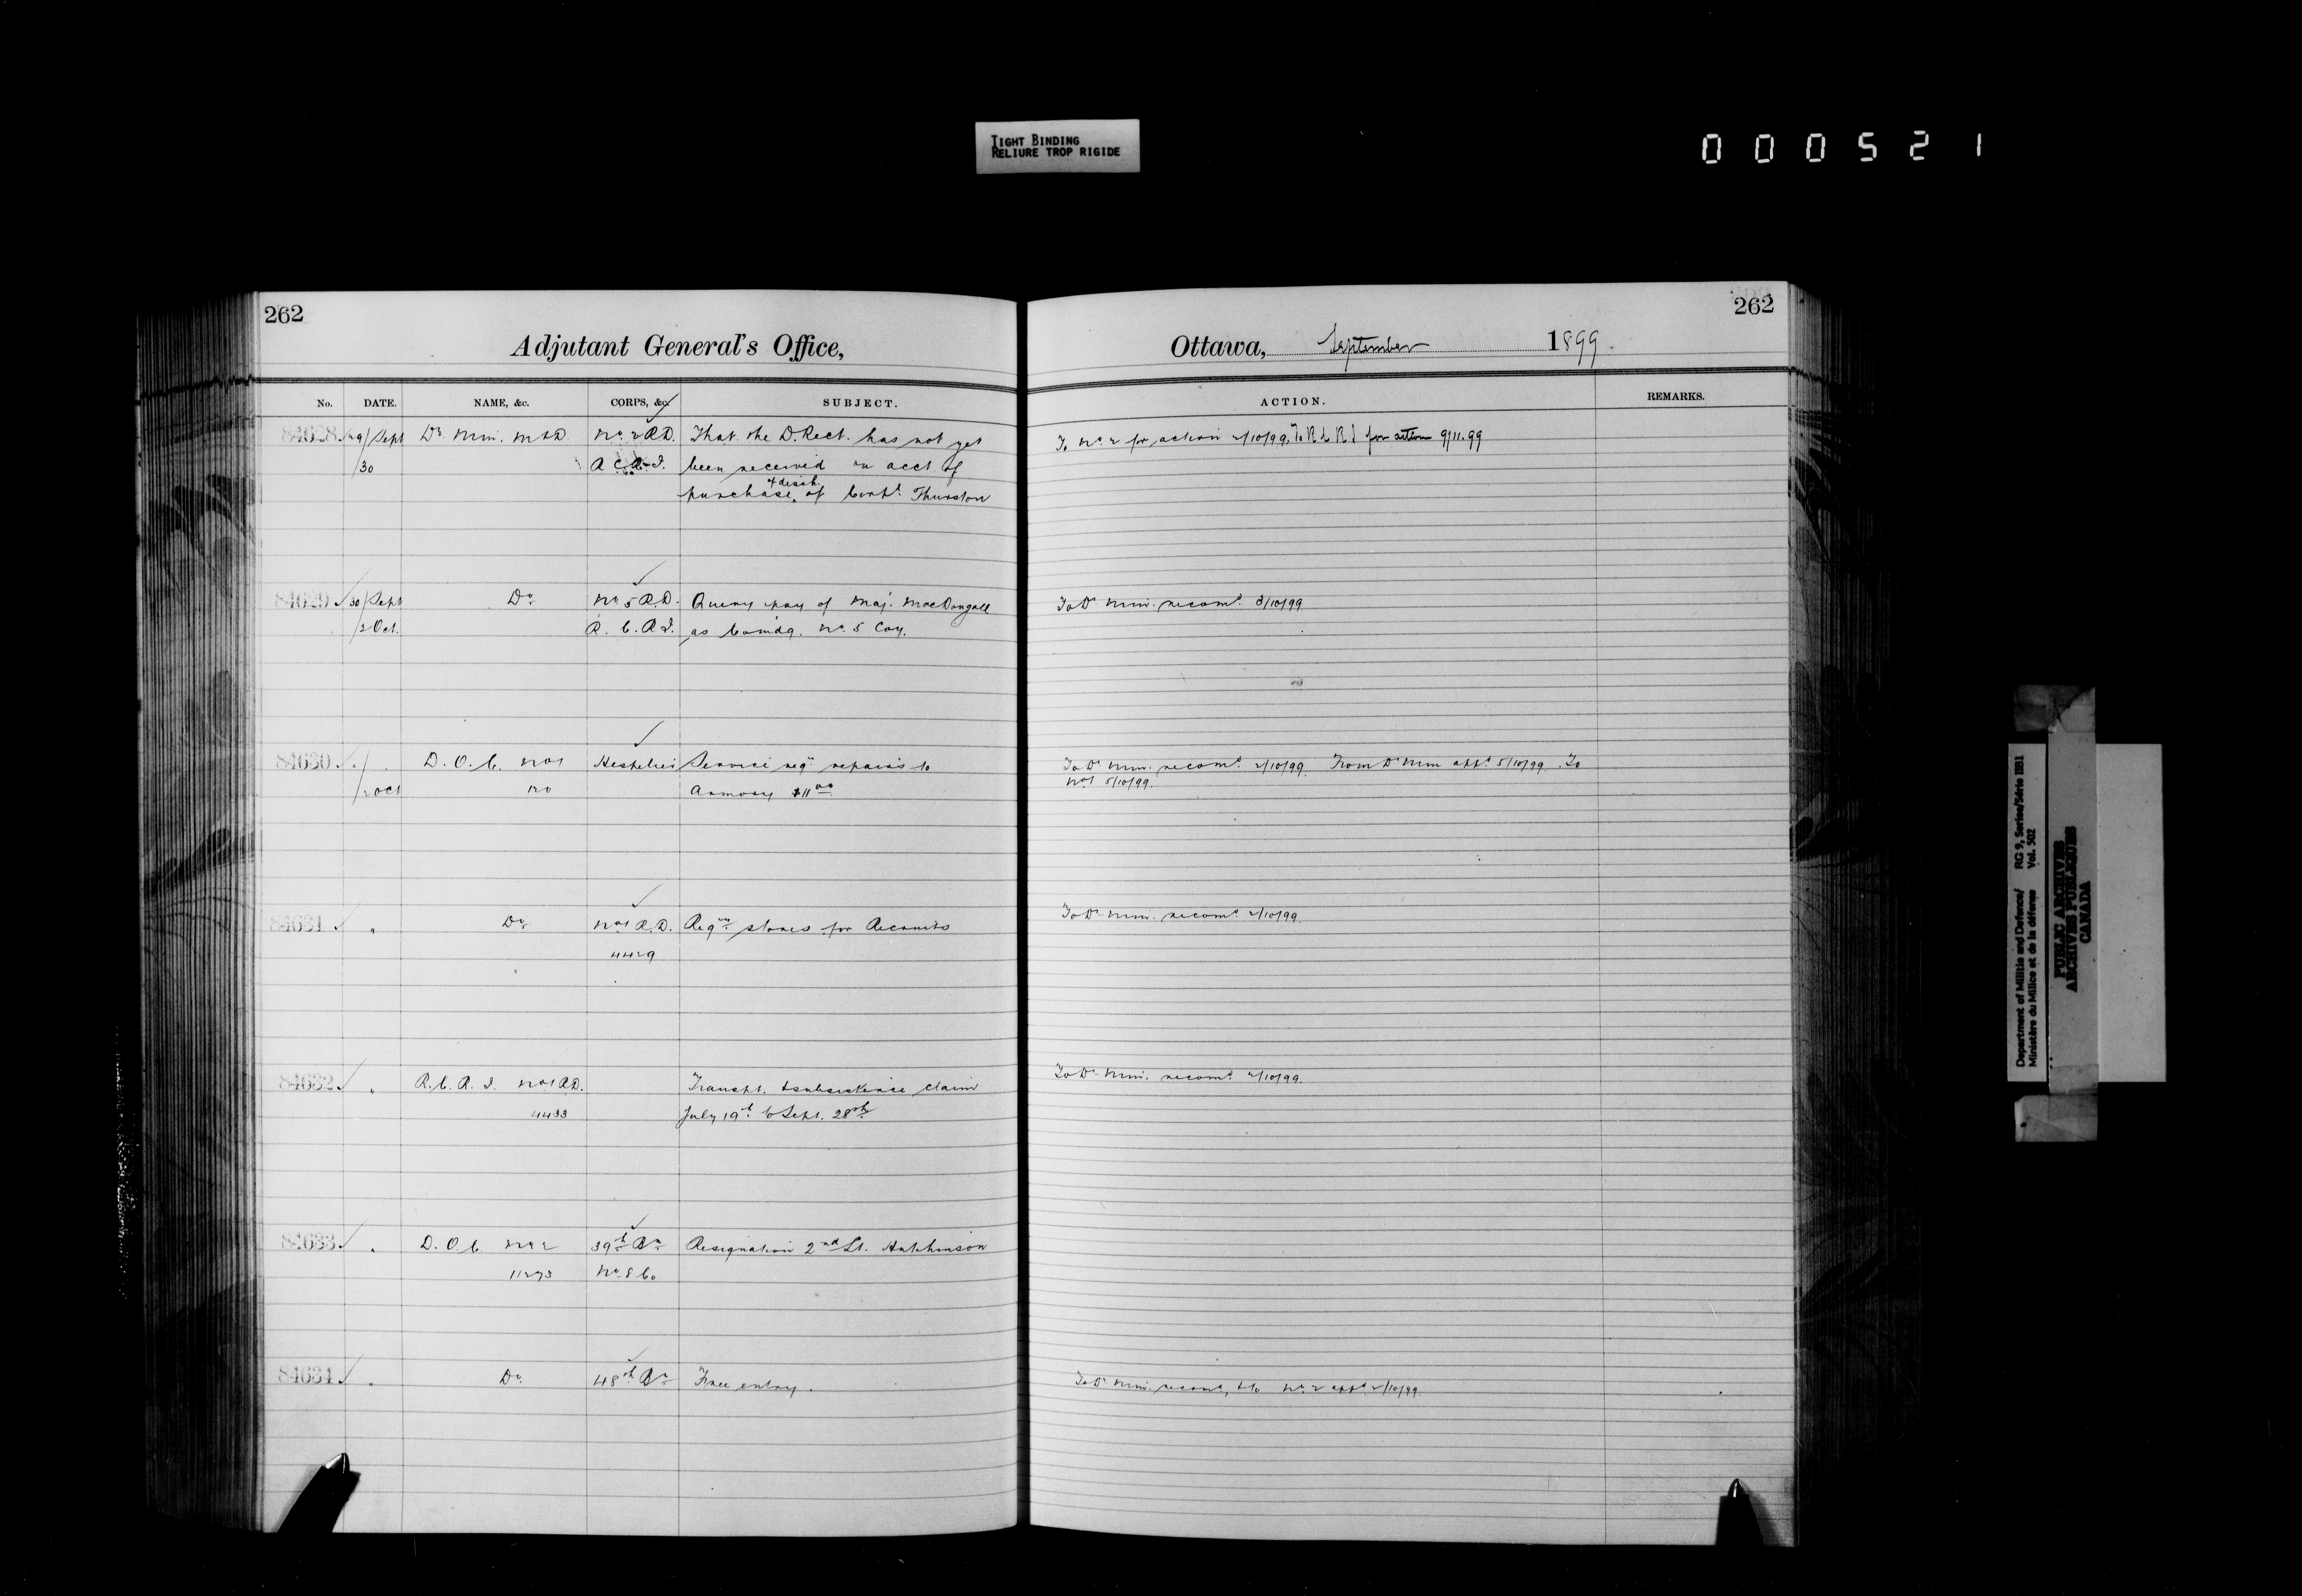 TIGHT BINDING
RELIURE TROP RIGIDE
000521
262
Adjutant General's Office,
No. DATE. NAME, &c. CORPS, &c. SUBJECT.
84628 29/Sept Dr. Min. M & D. No. 2 R.D. That the D. Rect. has not yet
/30 R.C.R.I. been received on acct of
& disch.
purchase of Corpl. Thurston
84629 30/Sept Do. No. 5 R.D. Query pay of Maj. MacDougall
/2 Oct. R.C.R.I. as Comdg. No. 5 Coy.
84630 D.O.C. No 1 Hespeler Service reqn. repairs to
/2 Oct 120 Armory $11 00
84631 " Do. No 1 R.D. Reqn. stores for Recruits
4429
84632 " R.C.R.I. No 1 R.D. Transpt. & subsistence claim
4433 July 19th to Sept. 28th
84633 " D.O.C. No. 2 39th Bn. Resignation 2nd Lt. Hutchinson
11273 No. 8 Co
84634 " Do. 48th Bn. Free entry.
262
Ottawa, September 1899.
ACTION. REMARKS.
To No. 2 for action 2/10/99. To R C R I for action 9/11.99
To Dr. Min. recomd. 3/10/99
To Dr. Min. recomd. 2/10/99. From Dr. Min appd. 5/10/99. To
No 1 5/10/99.
To Dr. Min. recomd. 2/10/99.
To Dr. Min. recomd. 2/10/99.
To Dr. Min. recomd., & to No. 2 appd. 2/10/99.
Department of Militia and Defence/ RG 9, Series/Série IIB1
Ministère du Milice et de la défense Vol. 502
PUBLIC ARCHIVES
ARCHIVES PUBLIQUES
CANADA